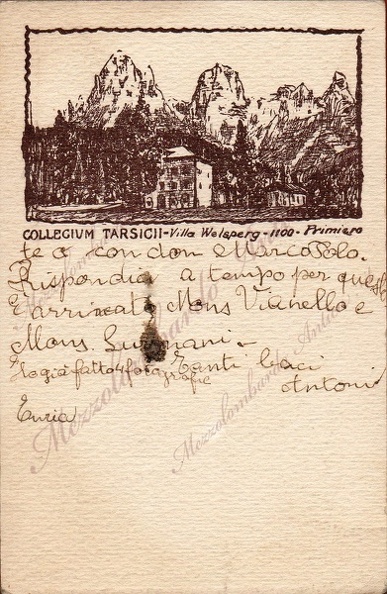 COLLEGIVM TARSICII-Villa Welsperg-1100-Primiero
te a London e Marco Polo.
Rispondia a tempo per questo
E arrivato Mons Vianello e
Mons.
gia fatto 4 fotografie Tanti baci
Antoni
Mezzolombardo Antica
Mezzolombardo Antica